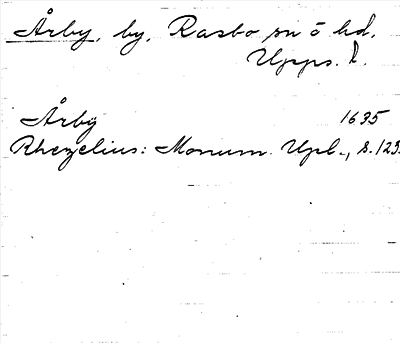 Årby, by, Rasbo sn o hd,
Upps. l.
Årby 1635
Rhezelius: Monum. Upl., s. 123.